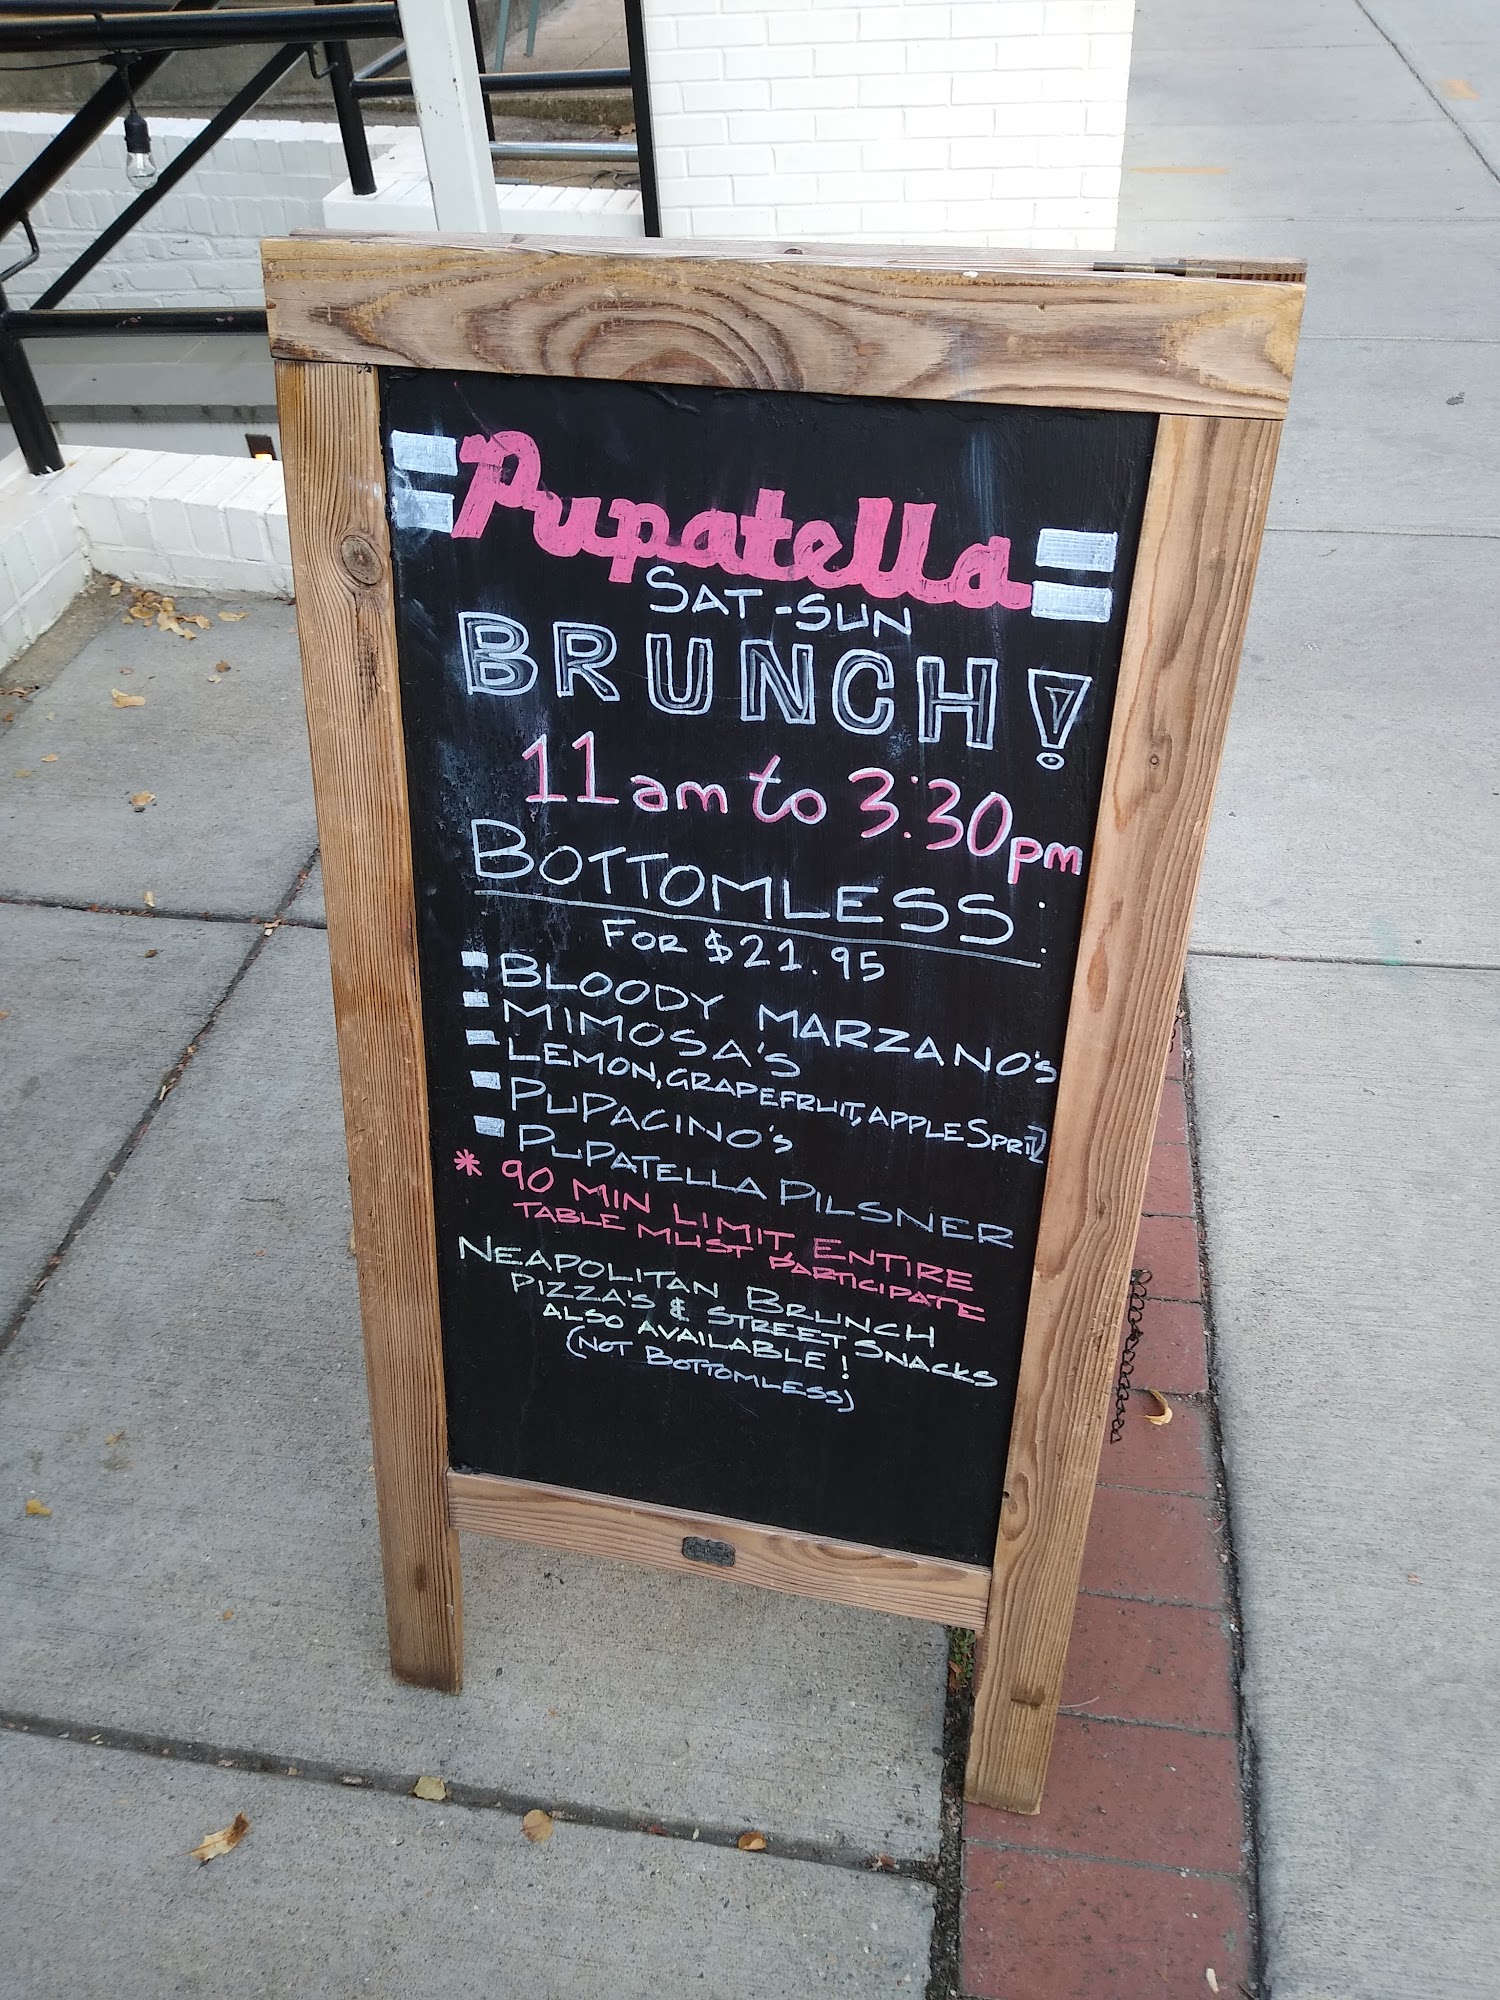 Pupatella
SAT-SUN
BRUNCH!
11am to 3:30pm
BOTTOMLESS:
FOR $21.95
BLOODY MARZANO'S
MIMOSA'S
LEMON, GRAPEFRUIT, APPLE SPRITZ
PUPACINO'S
PUPATELLA PILSNER
* 90 MIN LIMIT, ENTIRE
TABLE MUST PARTICIPATE
NEAPOLITAN BRUNCH
PIZZA'S & STREET SNACKS
ALSO AVAILABLE!
(NOT BOTTOMLESS)